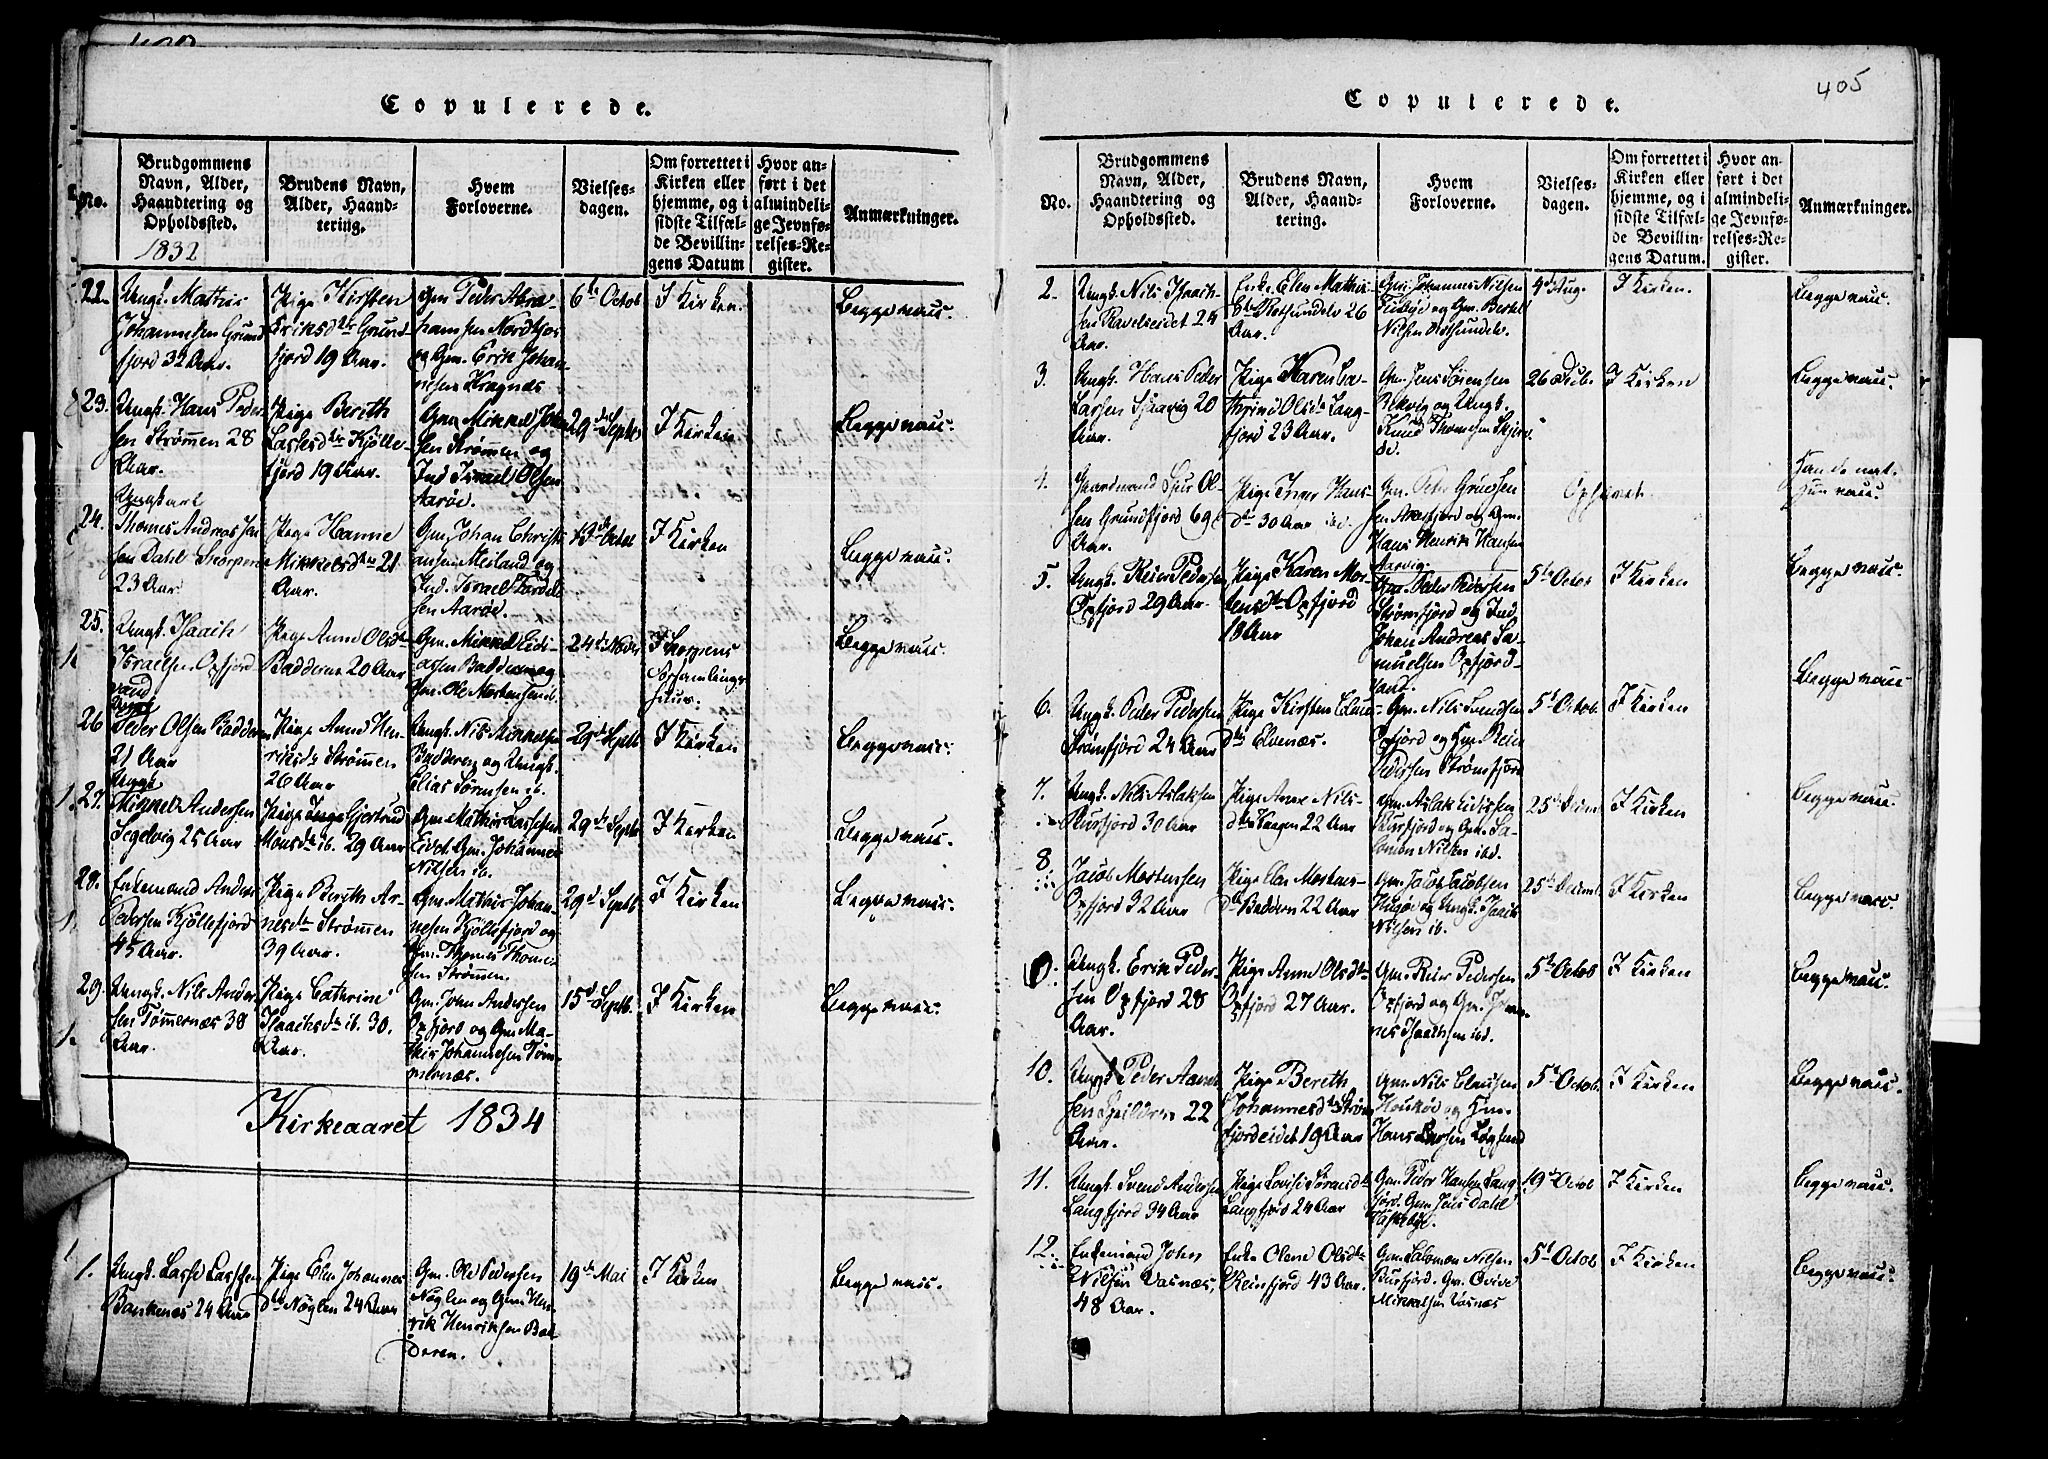 Copulerede.
No.
Brudgommens
Navn, Alder,
Haandtering og
Opholdssted.
1832
Brudens Navn,
Alder, Haand-
tering.
Hvem
Forloverne.
Vielses-
dagen.
Om forrettet i
Kirken eller
hjemme, og i
sidste Tilfæl-
de Bevillin-
gens Datum
Hvor an-
ført i det
almindeli-
ge Jevnfø-
relses-Re-
gister.
Anmærkninger.
22.
Ungk. Mathis
Johannesen Grund
fjord 32 Aar.
Pige Kirsten
Eriksdtr Grund
fjord 19 Aar.
Gm Peder Abra
hamsen Nordkjos
og Gm. Erik Johan-
nesen Kragnæs
6te Octob
I Kirken.
Begge vacc.
23.
Ungk. Hans Peder
sen Strømmen 28
Aar.
Pige Bereth
Lassesdtr Kjølle-
fjord 19 Aar.
Gm Mikkel Johan
sen Strømmen og
Ind Israel Olsen
Aarøe.
29de Septb
I Kirken
Begge vacc.
24.
Ungkarl
Thomas Andreas Jen
sen Dahl Skorpen
23 Aar.
Pige Hanne
Mikkelsdtr 21
Aar.
Gm Johan Christi
ansen Meiland og
Ind. Israel
sen Aarøe.
13de Octob
I Kirken
Begge vacc.
25.
Ungk. Isaach
Israelsen Oxfjord
vand
Pige Anne Olsdtr
Badderen 20 Aar
Gm. Mikkel Eidi-
assen Badderen og
Gm. Ole Mortensen ib.
24de Novbr
I Skorpens
Forsamlings
huus.
Begge vacc.
26
Ungk.
Peder Olsen Badderen
21 Aar
Pige Anne Hen-
riksdtr Strømmen
26 Aar
Ungk. Nils Mikkelsen
Badderen og Ungk.
Elias Sørensen ib.
29de Septb
I Kirken
Begge vacc.
27.
Ungk.
Mikkel Andersen
Segelvig 25 Aar
Pige Inger Gjertrud
Monsdtr ib. 29 Aar
Gm Mathis Lassesen
Eidet Gm. Johannes
Nilsen ib.
29de Septb
I Kirken
Begge vacc.
28.
Enkemand Anders
Pedersen Kjøllefjord
45 Aar.
Pige Bereth Ar-
nesdtr Strømmen
39 Aar.
Gm. Mathis Johan-
nesen Kjøllefjord og
Gm. Thomas Thoma-
sen Strømmen.
29d Septb
I Kirken
Begge vacc.
29.
Ungk. Nils Ander
sen Tømmernæs 38
Aar.
Pige Cathrine
Isaachsdtr ib. 30.
Aar.
Gm. John Andersen
Oxfjord og Gm. Ma-
this Johannesen Tøm-
mernæs.
15d Septb.
I Kirken
Begge vacc.
Kirkeaaret 1834
1.
Ungk. Lasse Lassesen
Bankenæs 24 Aar
Pige Elen Johannes
dtr Nøglen 24 Aar
Gm. Ole Pedersen
Nøglen og Gm. Hen-
rik Henriksen Bad-
deren.
19de Mai
I Kirken
Begge vacc.
Copulerede.
405
No.
Brudgommens
Navn, Alder,
Haandtering og
Opholdssted.
Brudens Navn,
Alder, Haand-
tering.
Hvem
Forloverne.
Vielses-
dagen.
Om forrettet i
Kirken eller
hjemme, og i
sidste Tilfæl-
de Bevillin-
gens Datum.
Hvor an-
ført i det
almindeli-
ge Jevnfø-
relses-Re-
gister.
Anmærkninger.
2.
Ungk. Nils Isaach-
sen Ravelseidet 24
Aar.
Enke Elen Mathis
dtr Rotsundelv 26
Aar.
Gm. Johannes Nilsen
og Gm. Bertel
Nilsen Rotsundelv.
4d Aug.
I Kirken.
Begge vacc.
3.
Ungk. Hans Peder
Larsen Spaavig 20
Aar.
Pige Karen Ca-
thrine Olsdtr Lang-
fjord 23 Aar.
Gm. Jens Sørensen
Rekvig og Ungk.
Knud Thomesen Skjerv
de.
26 Dcb.
I Kirken
Begge vacc.
4.
Gaardmand Siur Ol-
sen Grundfjord 69
Aar.
Pige Inger Hans-
dtr 30 Aar ibd.
Gm. Peder
sen og Gm.
Hans Henrik Hansen
Aarvig.
Ophævet.
Han de nat.
Hun vacc.
5.
Ungk. Reier Pedersen
Oxfjord 29 Aar.
Pige Karen Mor-
tensdtr Oxfjord
18 Aar
Gm. Peder Pedersen
Strømfjord og Ind
Johan Andreas Sa-
muelsen Oxfjord-
vand.
5te Octob
I Kirken
Begge vacc.
6.
Ungk. Peder Pedersen
Strømfjord 24 Aar
Pige Kirsten Elnæs-
dtr Elvenæs.
Gm. Nils Svendsen
Oxfjord og Gm. Reier
Pedersen Strømfjord
5t Octob.
I Kirken
Begge vacc
7.
Ungk. Nils Aslaksen
Burfjord 30 Aar
Pige Anne Nils-
dtr Vaagen 22 Aar
Gm. Aslak Eidissen
Burfjord og Gm. Sa-
lomon Nilsen ibd.
25de Decmb
I Kirken
Begge vacc.
8
Jacob Mortensen
Oxfjord 32 Aar
Pige Elen Mortens-
dtr Baddern 22 Aar
Gm. Jacob Jacobsen
Hugøe og Ungk. Isaach
Nilsen ib.
25de Decmb
I Kirken
Begge vacc.
9.
Ungk. Erik Peder-
sen Oxfjord 28
Aar.
Pige Anne Olsdtr
Oxfjord 27 Aar.
Gm. Reier Pedersen
Oxfjord og Gm. Johan-
nes Isaachsen ibd.
5te Octob
I Kirken
Begge vacc.
10.
Ungk. Peder Aamt
sen 22
Aar.
Pige Bereth
Johannesdtr Strøm-
fjordeidet 19 Aar
Gm. Nils Clausen
Haukøe og Gm.
Hans Larsen Løgsund
5t Octob.
I Kirken
Begge vacc.
11.
Ungk. Svend Andersen
Langfjord 34 Aar
Pige Lovise Sørensdtr
Langfjord 24 Aar
Gm. Peder Hansen Lang
fjord. Gm Jens Dahl
19de Octob
I Kirken
Begge vacc.
12.
Enkemand John
Nilsen Vasnæs,
48 Aar.
Enke Olene Olsdtr
Reinfjord 43 Aar.
Gm. Salomon Nilsen
Burfjord. Gm.
Mikkelsen Vasnæs
5t Octob
I Kirken
Begge vacc.